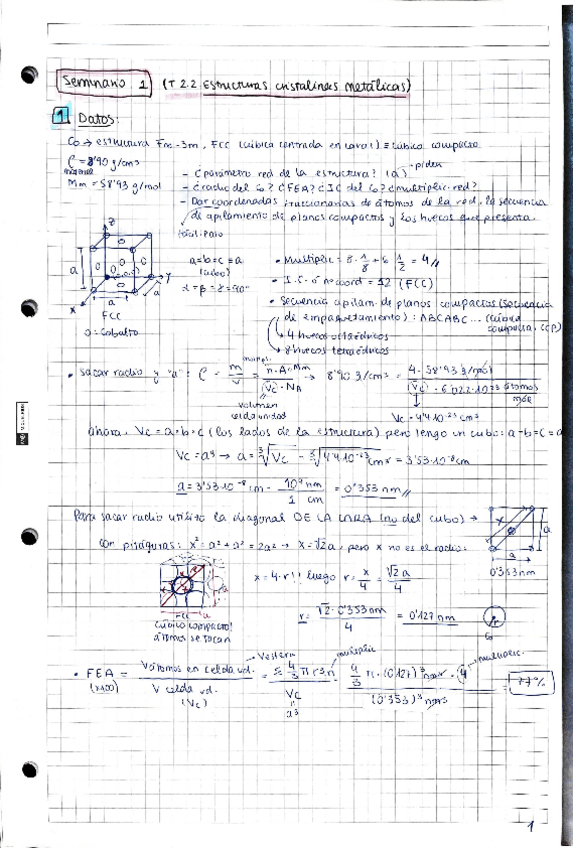 Seminario 1 (T 2.2 Estructuras cristalinas metálicas)
1 Datos:
Co → estructura Fm-3m, FCC (cúbica centrada en caras) ≡ cúbico compacto
ρ = 8'90 g/cm³
Mm = 58'93 g/mol
piden
- ¿parámetro red de la estructura? (a)
- ¿radio del Co? ¿FEA? ¿IC del Co? ¿multiplic. red?
- Dar coordenadas fraccionarias de átomos de la red, la secuencia
de apilamiento de planos compactos y los huecos que presenta.
Z
a
Y
X
a
a
FCC
O = Cobalto
a=b=c=a
(cubo)
α=β=γ=90°
• Multiplic = 8 · 1/8 + 6 · 1/2 = 4 //
• I.C. ó nº coord = 12 (FCC)
• Secuencia apilam. de planos compactos (secuencia
de empaquetamiento): ABCABC... (cúbica
compacta, CCP)
4 huecos octaédricos
8 huecos tetraédricos
• Sacar radio y "a": ρ = m/V = n·A·Mm/(Vc)·NA → 8'90 g/cm³ = 4·58'93 g/mol / (Vc)·6'022·10²³ átomos/mol
volumen
celda unidad
Vc = 4'4·10⁻²³ cm³
ahora, Vc = a·b·c (los lados de la estructura) pero tengo un cubo: a=b=c=a
Vc = a³ → a = ∛Vc = ∛4'4·10⁻²³ cm³ = 3'53·10⁻⁸ cm
a = 3'53·10⁻⁸ cm · 10⁷ nm / 1 cm = 0'353 nm //
Para sacar radio utilizo la diagonal DE LA CARA (no del cubo) →
con pitágoras: x² = a² + a² = 2a² → x = √2a, pero x no es el radio:
x
a
a
0'353 nm
x = 4·r!! luego r = x/4 = √2a/4
r = √2 · 0'353 nm / 4 = 0'127 nm
r
Co
FCC
cúbico compacto!
átomos se tocan
• FEA = V átomos en celda ud. / V celda ud. (Vc) = 4/3 π r³·n / Vc = 4/3 π · (0'127)³ nm³ · 4 / (0'353)³ nm³ = 77%
(x100)
V esfera
multiplic
multiplic.
Vc
=
a³
1